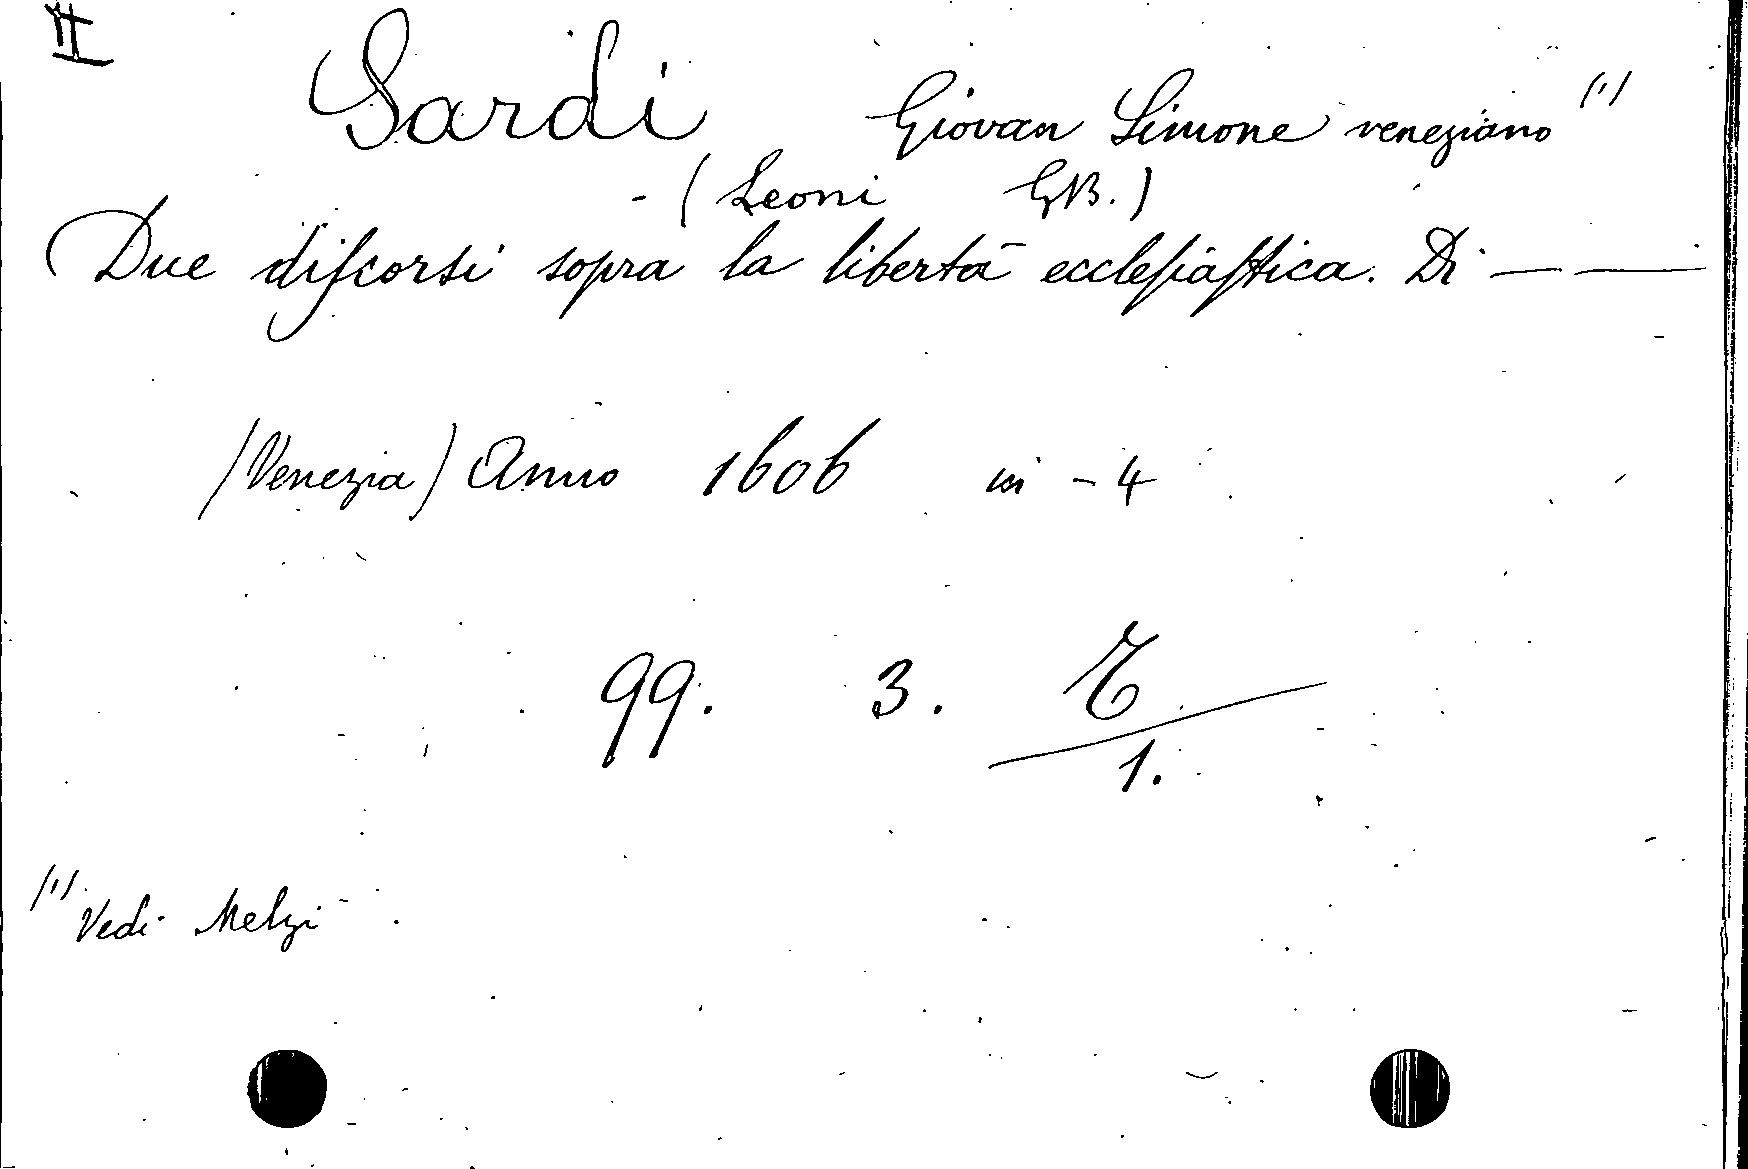 II
Sardi Giovan Simone veneziano (1)
- (Leoni GB.)
Due diſcorsi sopra la libertà eccleſiaſtica. Di — —
(Venezia) Anno 1606 in - 4
99. 3. E
1.
(1) Vedi Melzi